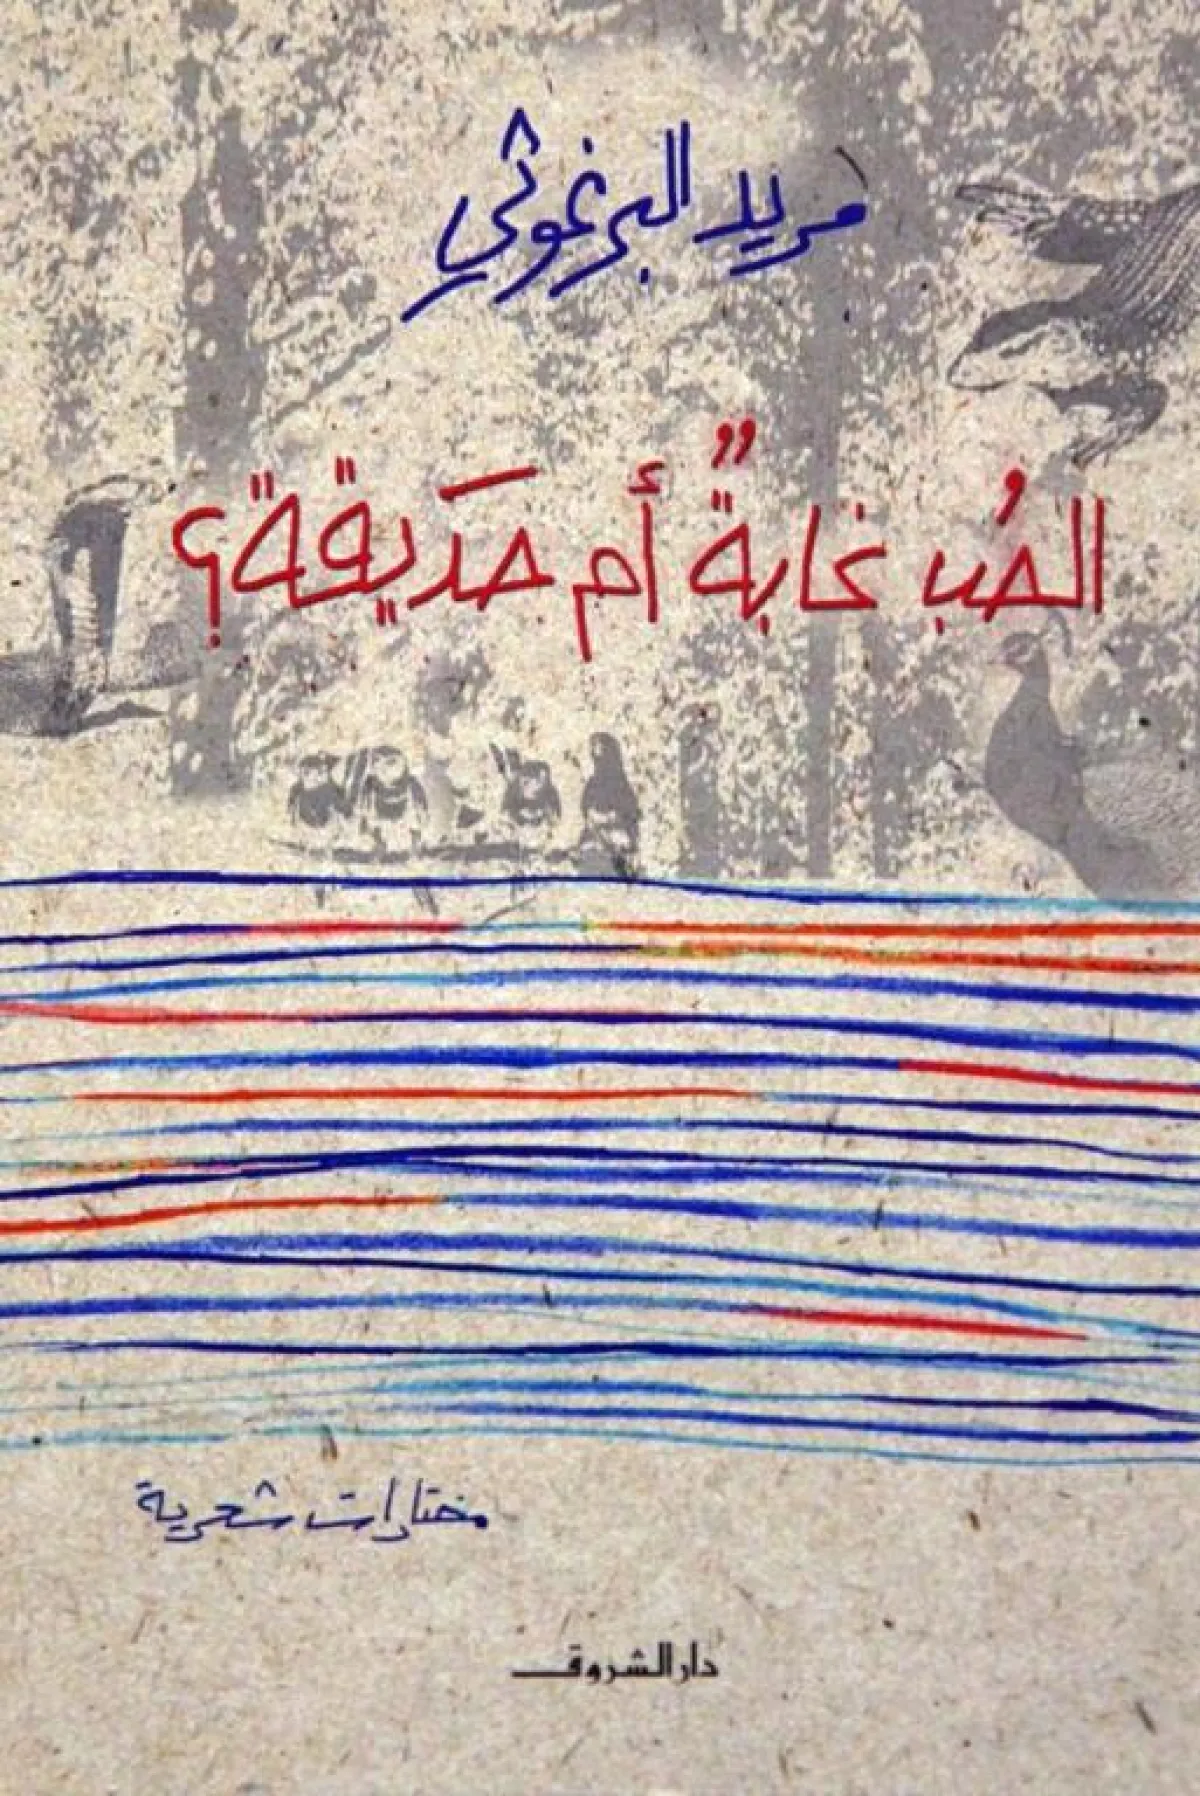 مريد البرغوثي
الحُب غابةٌ أم حَديقة؟
مختارات شعرية
دار الشروق